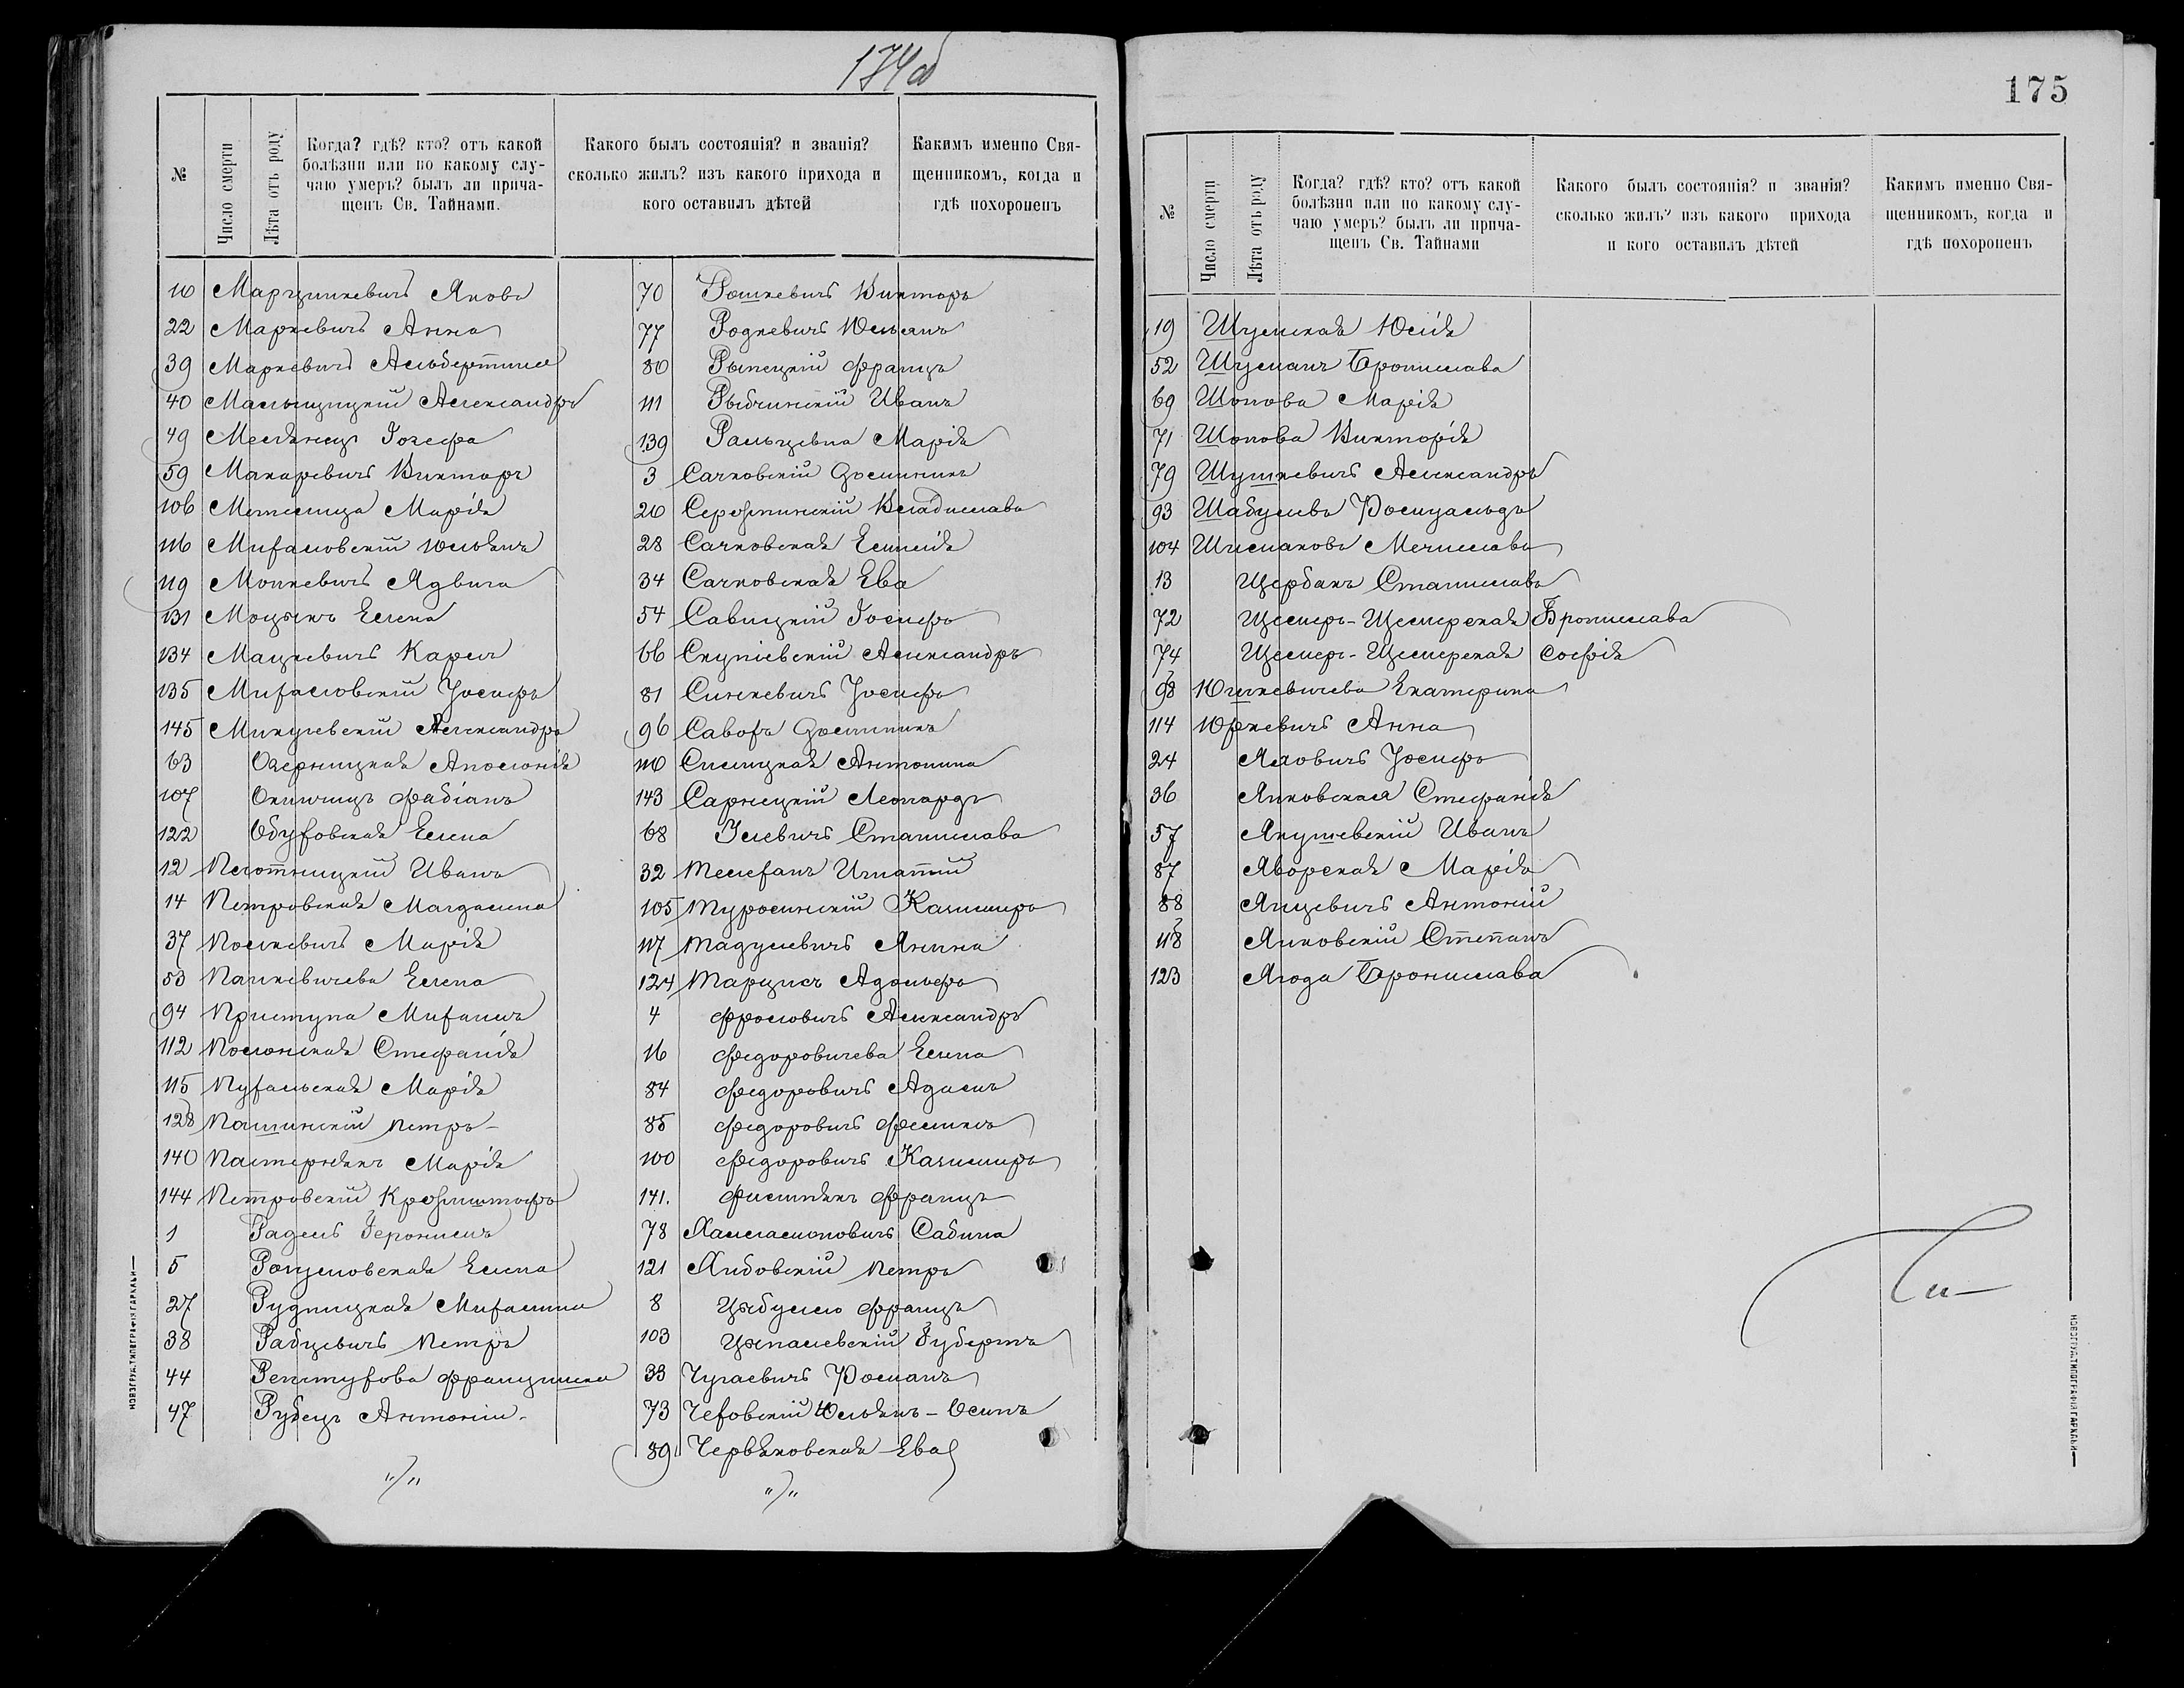 174 об
№
Число смерти
Лѣта отъ роду
Когда? гдѣ? кто? отъ какой
болѣзни или по какому слу-
чаю умеръ? былъ ли прича-
щенъ Св. Тайнами.
Какого былъ состоянія? и званія?
сколько жилъ? изъ какого прихода и
кого оставилъ дѣтей
Какимъ именно Свя-
щенникомъ, когда и
гдѣ похороненъ
10 Марцинкевичъ Яковъ
22 Маркевичъ Анна
39 Маркевичъ Альбертина
40 Мальчицкій Александръ
49 Мелянец Іозефа
59 Макаревичъ Викторъ
106 Метелица Марія
116 Михаловскій Юльянъ
119 Монкевичъ Ядвига
131 Моцыкъ Елена
134 Мацкевичъ Кароль
135 Михаловскій Іосифъ
145 Микулевскій Александръ
63 Озерницкая Аполонія
107 Окинчицъ Фабіанъ
122 Обуховская Елена
12 Плотницкій Иванъ
14 Петровская Магдалина
37 Полкевичъ Марія
53 Панкевичева Елена
94 Приступа Михаилъ
112 Полонская Стефанія
115 Пухальская Марія
128 Пашинскій Петръ
140 Пастернякъ Марія
144 Петровскій Крофиштофъ
1 Радель Геронимъ
5 Рогуловская Елена
27 Рудницкая Михалина
38 Рабцевичъ Петръ
44 Рептухова Францишка
47 Рубецъ Антоній
"/"
70 Рошкевичъ Викторъ
77 Родкевичъ Юльянъ
80 Рынецкій Францъ
111 Рыбчинскій Иванъ
139 Ральцевна Марія
3 Сачковскій Доминикъ
20 Серофтинскій Владиславъ
28 Сачковская Емилія
34 Сачковская Ева
54 Савицкій Іосифъ
66 Скупіевскій Александръ
81 Синкевичъ Іосифъ
96 Саворъ Доминикъ
110 Силицкая Антонина
143 Сарнецкій Леонардъ
68 Улевичъ Станислава
32 Телеханъ Игнатій
105 Туросинскій Казимиръ
117 Тадулевичъ Янина
124 Тарцисъ Адольфъ
4 Фроловичъ Александръ
16 Федоровичева Елена
84 Федоровичъ Адамъ
85 Федоровичъ Феликсъ
100 Федоровичъ Казимиръ
141. Филипякъ Францъ
78 Хамламоповичъ Сабина
121 Хибовскій Петръ
8 Цыбулло Францъ
103 Цыпалевскій Губертъ
33 Чугаевичъ Романъ
73 Чеховскій Юльянъ-Осипъ
89 Червяковская Ева
"/"
175
№
Число смерти
Лѣта отъ роду
Когда? гдѣ? кто? отъ какой
болѣзни или по какому слу-
чаю умеръ? былъ ли прича-
щенъ Св. Тайнами
Какого былъ состоянія? и званія?
сколько жилъ? изъ какого прихода
и кого оставилъ дѣтей
Какимъ именно Свя-
щенникомъ, когда и
гдѣ похороненъ
19 Шумская Юлія
52 Шуманъ Бронислава
69 Шопова Марія
71 Шопова Викторія
79 Шушкевичъ Александръ
93 Шабулевъ Ромуальдъ
104 Шимаковъ Мечиславъ
13 Щербакъ Станиславъ
72 Щемеръ-Щемерская Бронислава
74 Щемеръ-Щемерская Софія
98 Юшкевичева Екатерина
114 Юркевичъ Анна
24 Яховичъ Іосифъ
36 Янковская Стефанія
57 Якушевскій Иванъ
87 Яворская Марія
88 Янцевичъ Антоній
118 Янковскій Степанъ
123 Ягода Бронислава
НОВОГРУД.ТИПОГРАФІЯ ГАРКАВИ
НОВОГРУД.ТИПОГРАФІЯ ГАРКАВИ